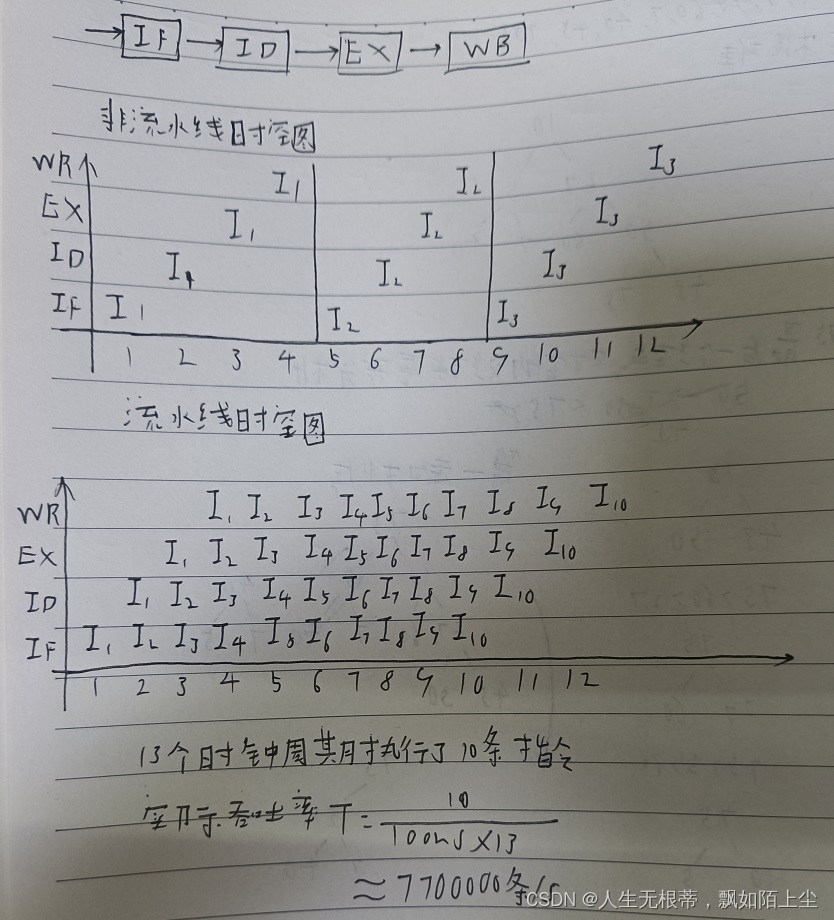 IF ID EX WB
非流水线时空图
WR I₁ I₂ I₃
EX I₁ I₂ I₃
ID I₁ I₂ I₃
IF I₁ I₂ I₃
1 2 3 4 5 6 7 8 9 10 11 12
流水线时空图
WR I₁ I₂ I₃ I₄ I₅ I₆ I₇ I₈ I₉ I₁₀
EX I₁ I₂ I₃ I₄ I₅ I₆ I₇ I₈ I₉ I₁₀
ID I₁ I₂ I₃ I₄ I₅ I₆ I₇ I₈ I₉ I₁₀
IF I₁ I₂ I₃ I₄ I₅ I₆ I₇ I₈ I₉ I₁₀
1 2 3 4 5 6 7 8 9 10 11 12
13个时钟周期执行了10条指令
实际吞吐率 T = 10
100ns×13
≈7700000条/s
CSDN @人生无根蒂，飘如陌上尘